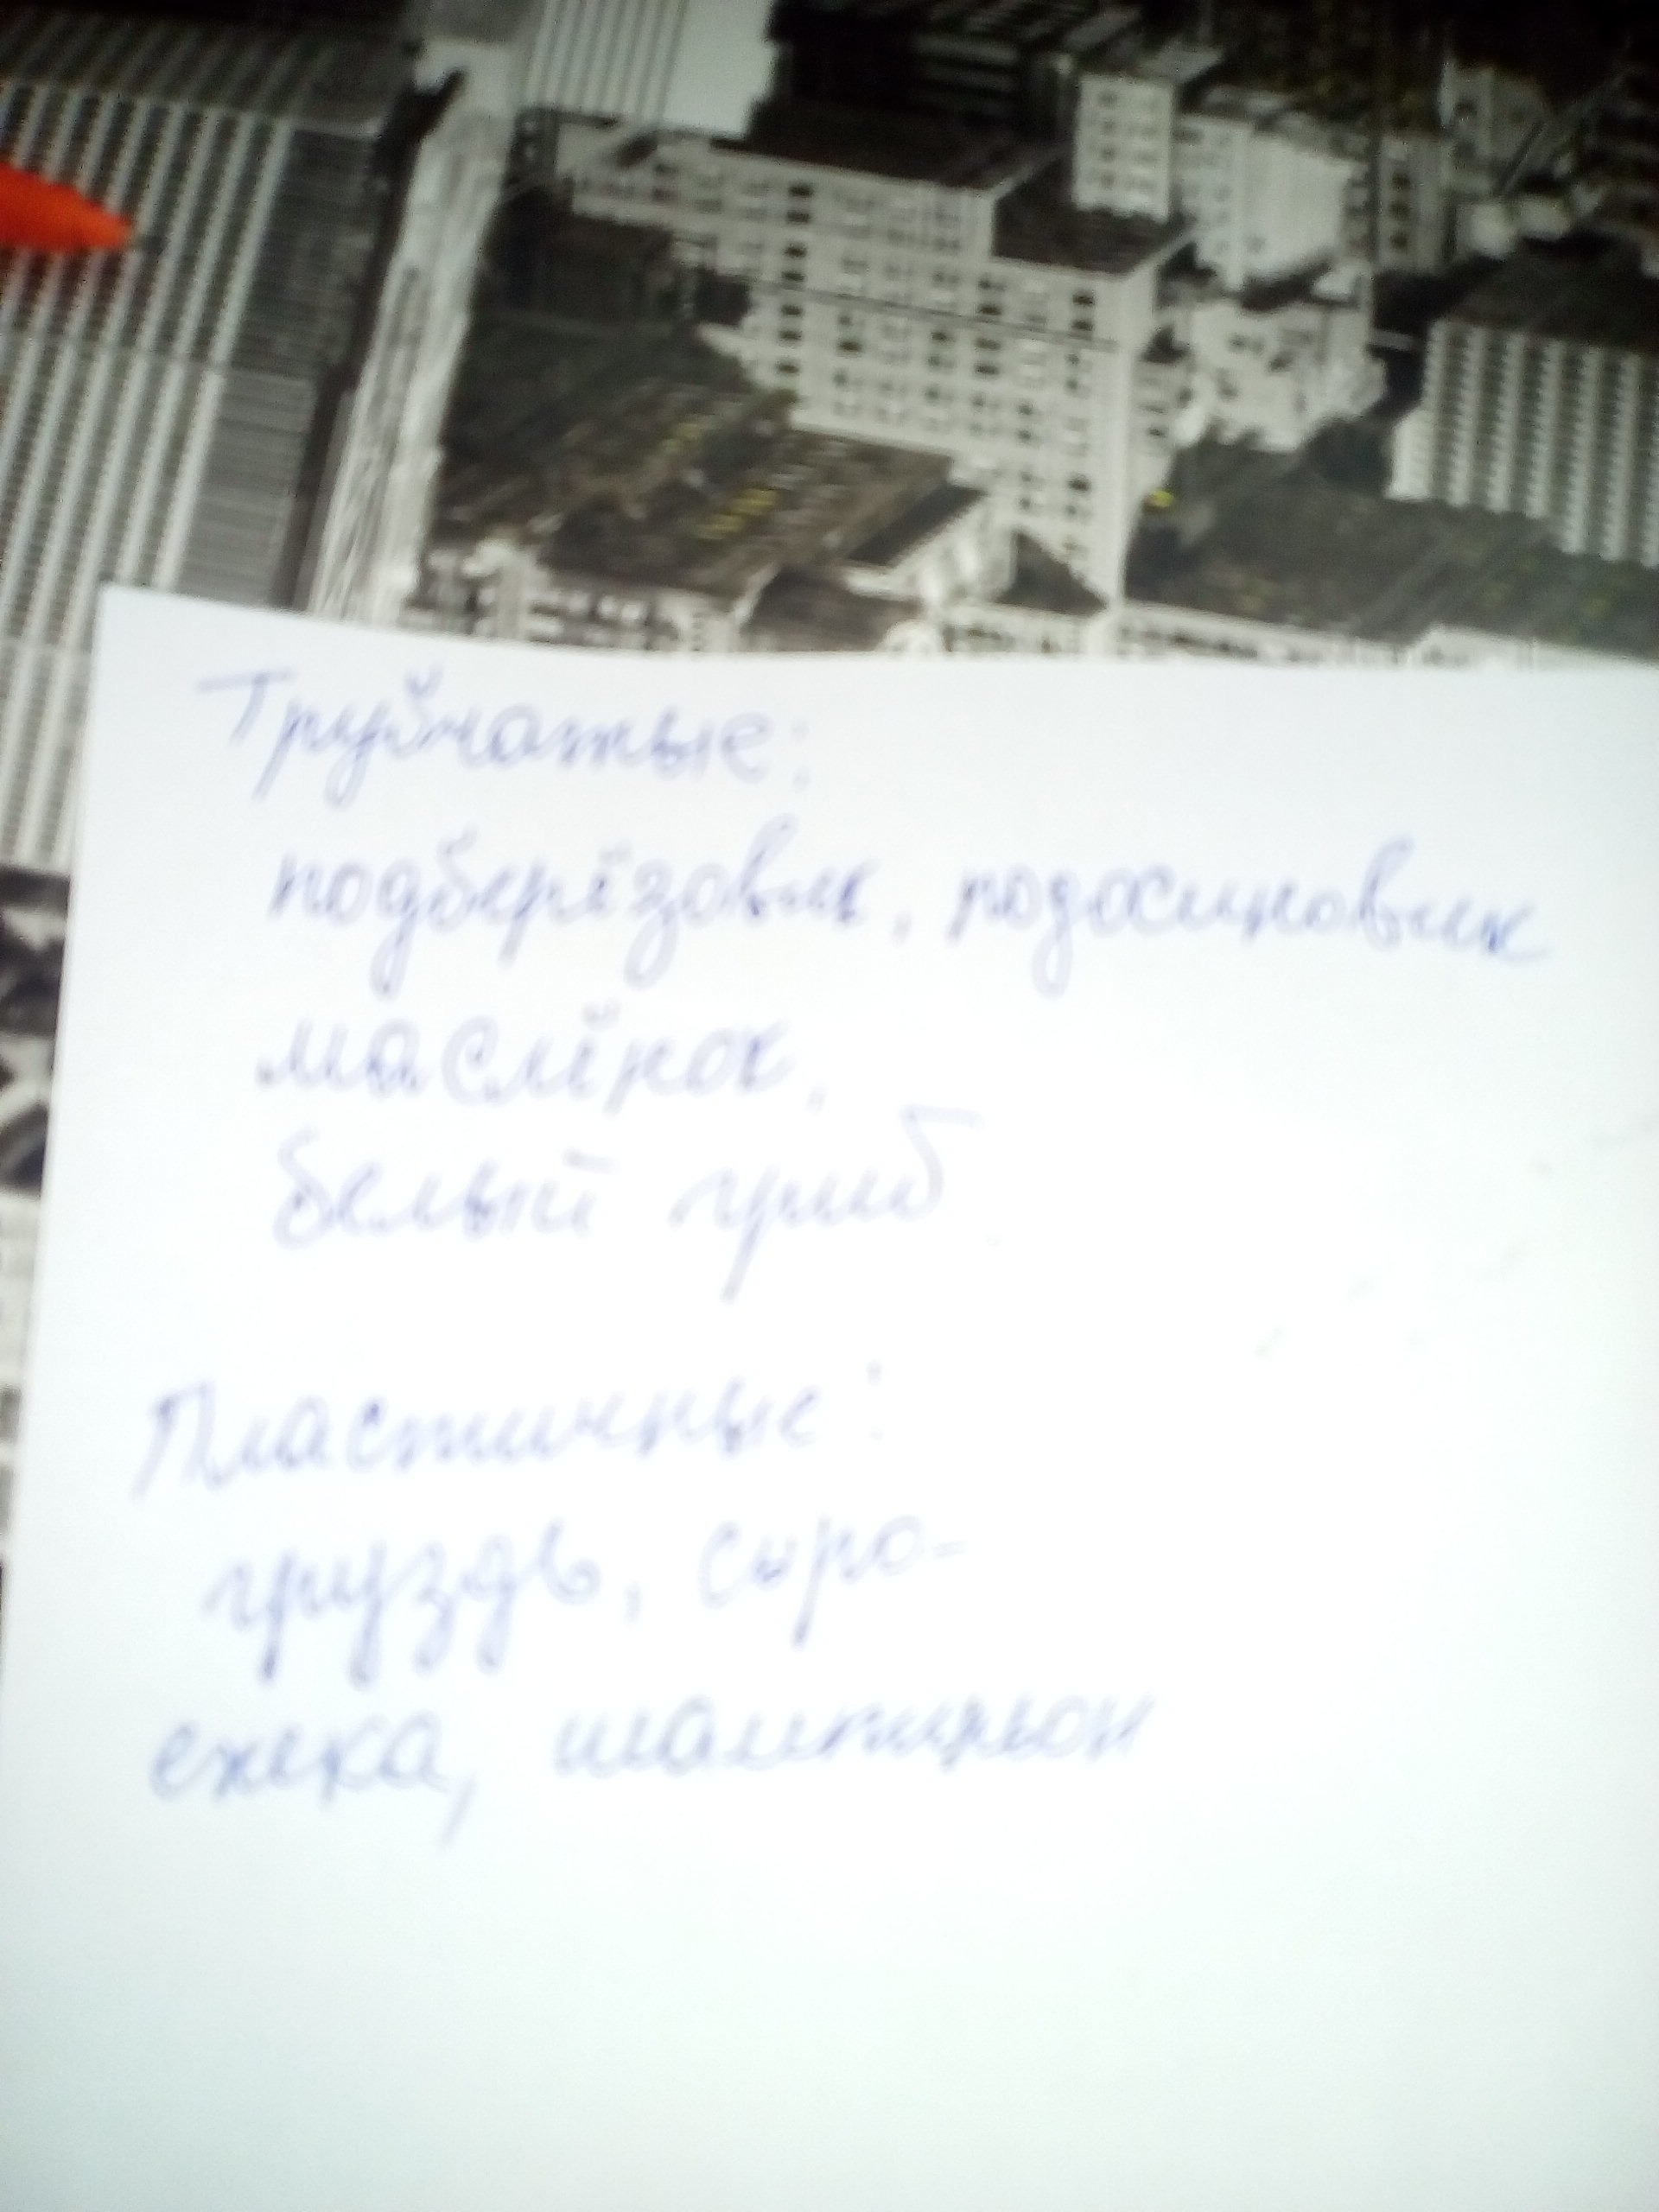 Трубчатые:
подберёзовик, подосиновик
маслёнок,
белый гриб
Пластинные:
груздь, сыро-
ежка, шампиньон